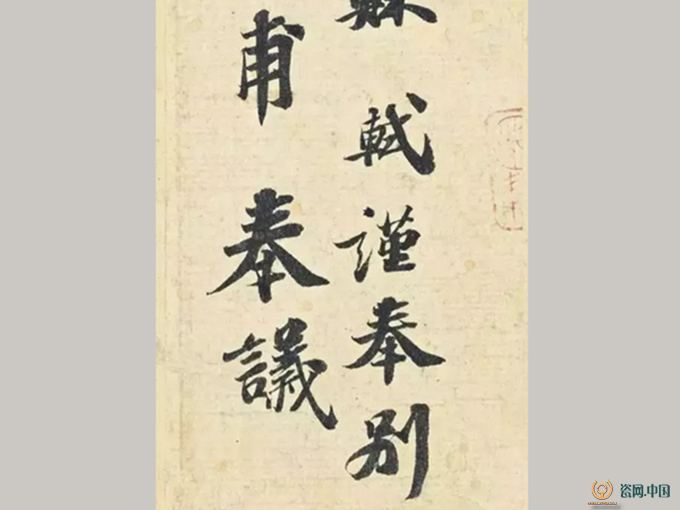 蘇軾謹奉別
甫奉議
瓷网.中国